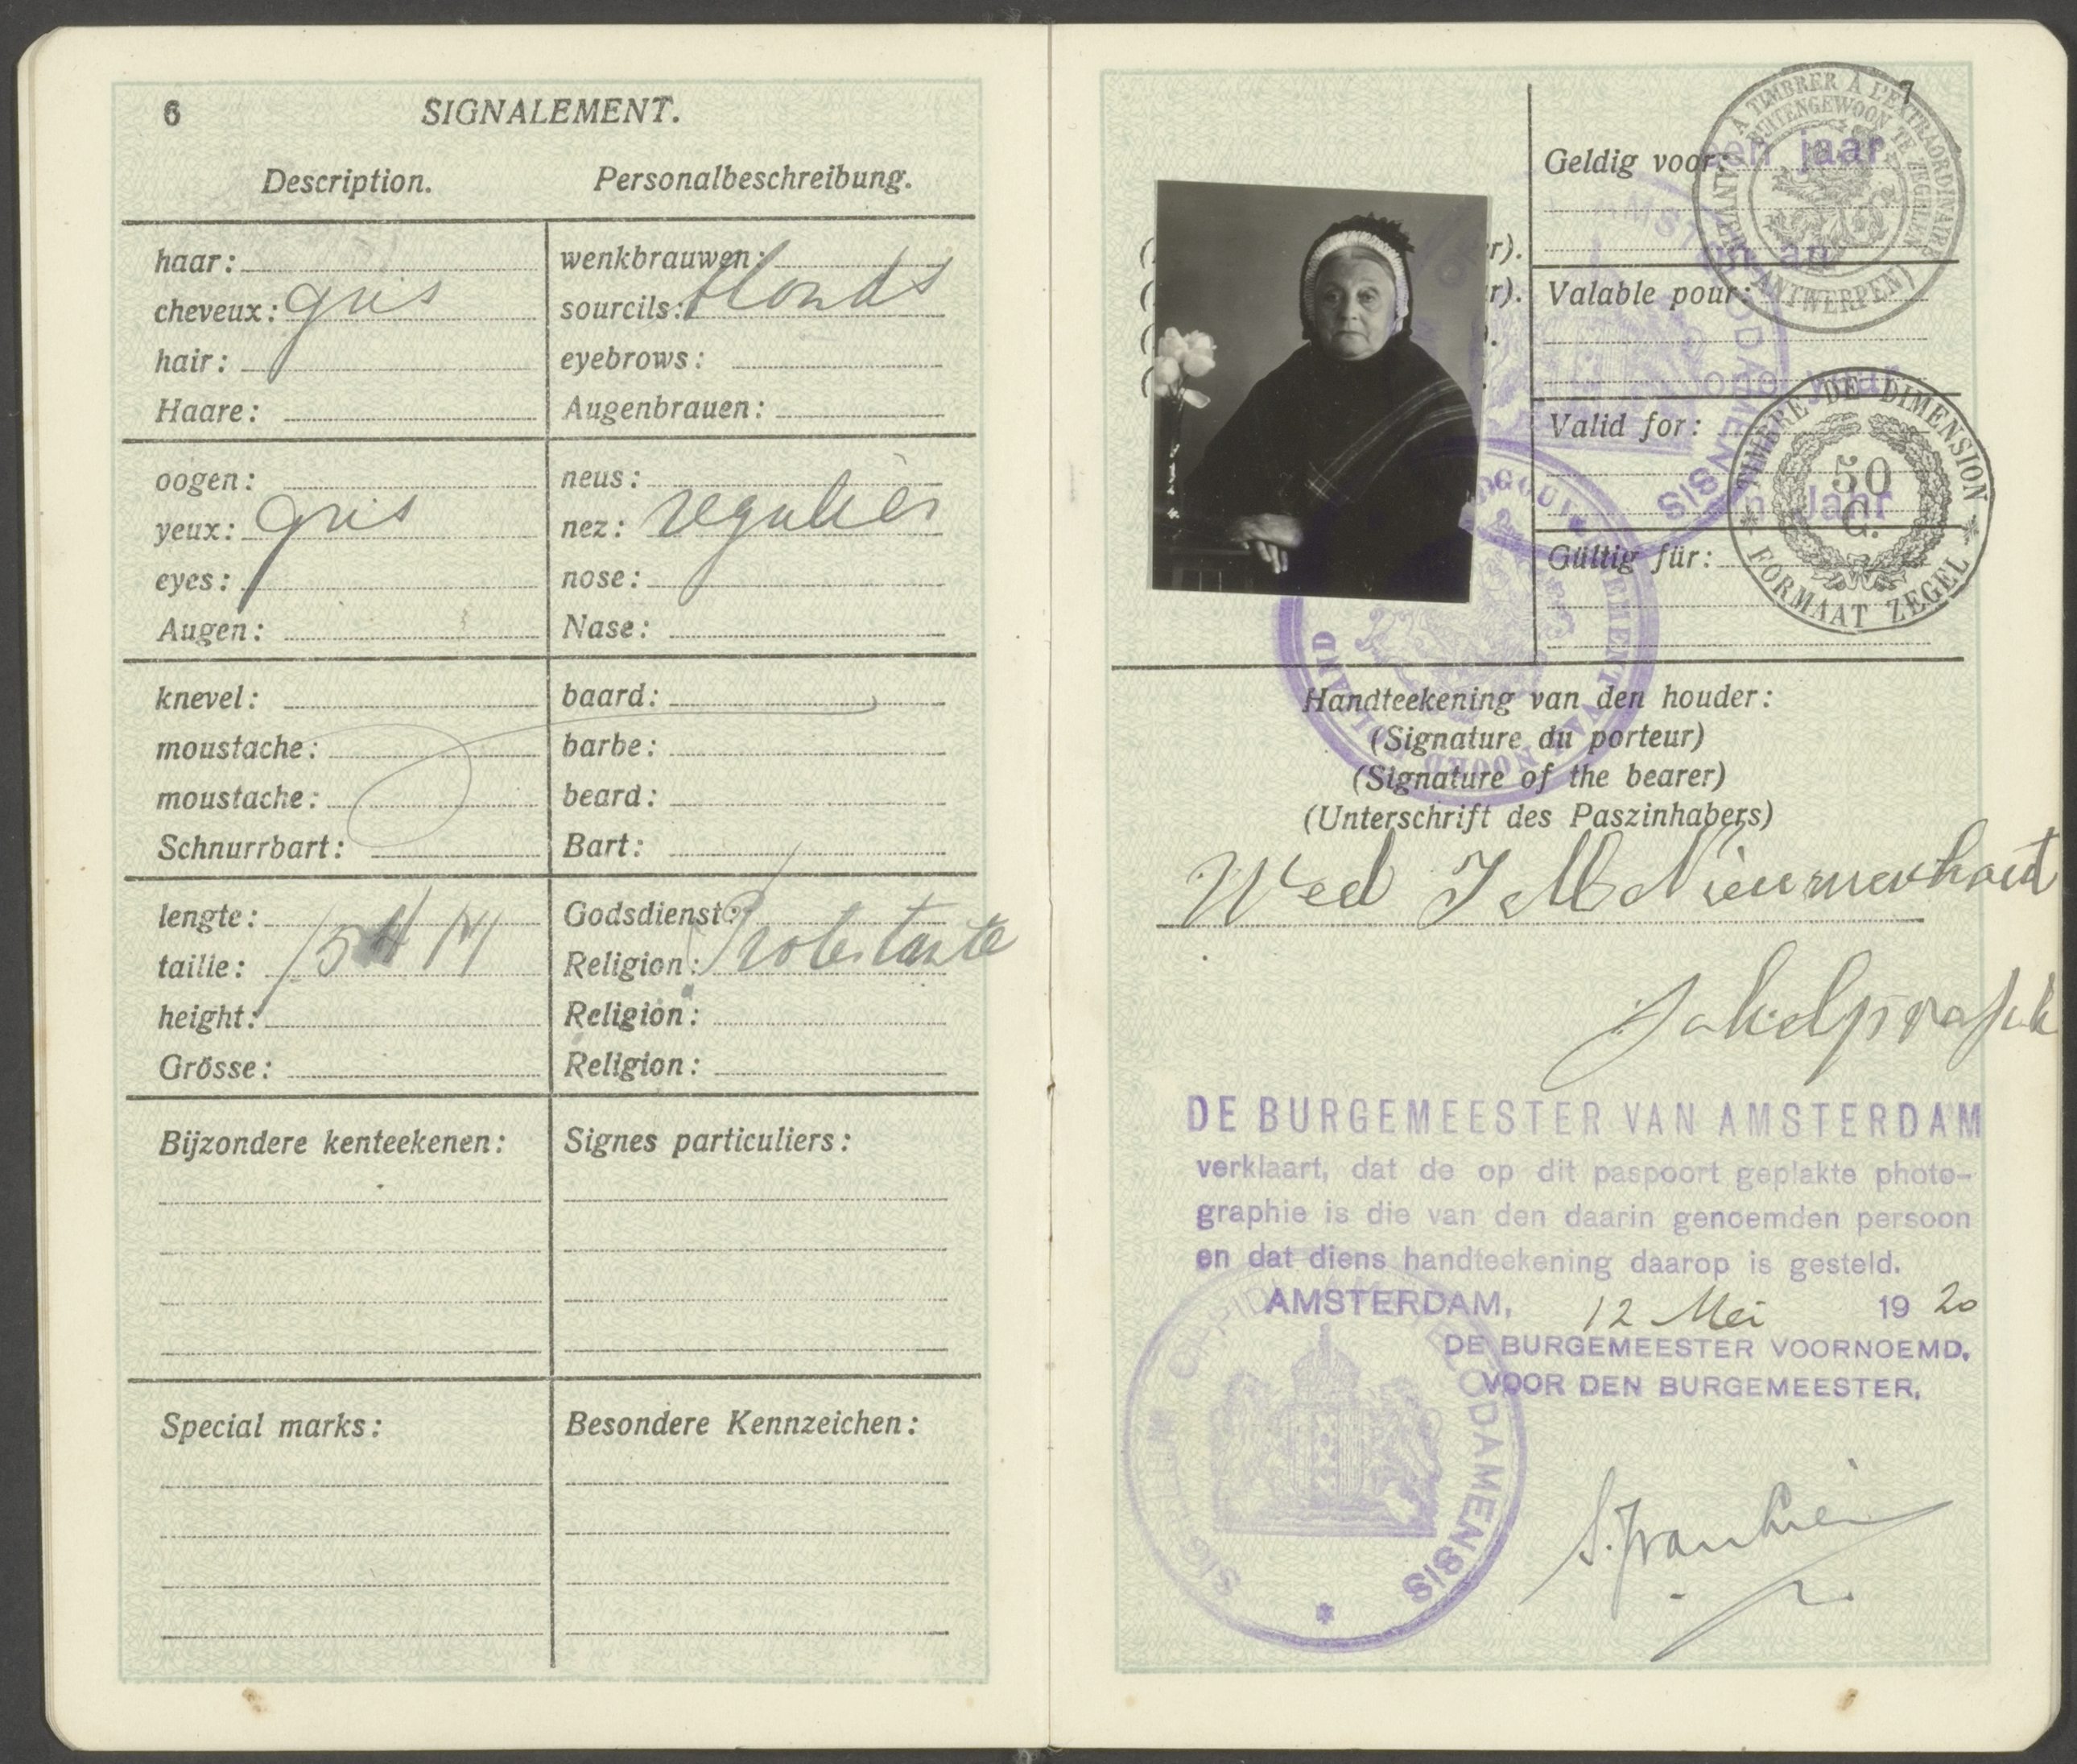 6
SIGNALEMENT.
Description. Personalbeschreibung.
haar: wenkbrauwen:
cheveux: gris sourcils: blonds
hair: eyebrows:
Haare: Augenbrauen:
oogen: neus:
yeux: gris nez: regulier
eyes: nose:
Augen: Nase:
knevel: baard:
moustache: barbe:
moustache: beard:
Schnurrbart: Bart:
lengte: Godsdienst:
taille: Religion: Protestante
height: Religion:
Grösse: Religion:
Bijzondere kenteekenen: Signes particuliers:
Special marks: Besondere Kennzeichen:
7
Geldig voor: een jaar
Valable pour: un an
Valid for: year
Gültig für: Jahr
r).
r).
A TIMBRER A L'EXTRAORDINAIRE
BUITENGEWOON TE ZEGELEN
(ANTWERPEN)
TIMBRE DE DIMENSION
50
C.
FORMAAT ZEGEL
Handteekening van den houder:
(Signature du porteur)
(Signature of the bearer)
(Unterschrift des Paszinhabers)
Wed J M
DE BURGEMEESTER VAN AMSTERDAM
verklaart, dat de op dit paspoort geplakte photo-
graphie is die van den daarin genoemden persoon
en dat diens handteekening daarop is gesteld.
AMSTERDAM, 12 Mei 19 20
DE BURGEMEESTER VOORNOEMD,
VOOR DEN BURGEMEESTER,